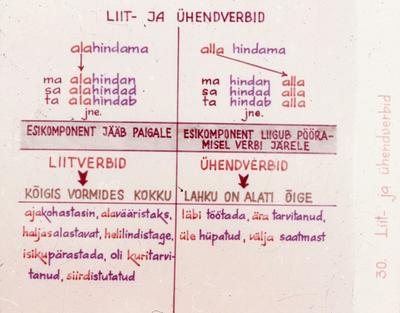 LIIT- JA ÜHENDVERBID
alahindama
ma alahindan
sa alahindad
ta alahindab
jne.
ESIKOMPONENT JÄÄB PAIGALE
LIITVERBID
KÕIGIS VORMIDES KOKKU
ajakohastasin, alavääristaks,
haljasalastavat, helilindistage,
isikupärastada, oli kuritarvi-
tanud, siirdistutatud
alla hindama
ma hindan alla
sa hindad alla
ta hindab alla
jne.
ESIKOMPONENT LIIGUB PÖÖRA-
MISEL VERBI JÄRELE
ÜHENDVERBID
LAHKU ON ALATI ÕIGE
läbi töötada, ära tarvitanud,
üle hüpatud, välja saatmast
30. Liit- ja ühendverbid